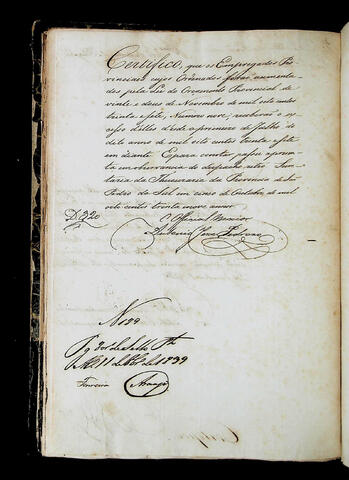 Certifico, que os Empregados Pro
vinciaes cujos Ordenados forão augmenta
dos pela Lei do Orçamento Provincial de
vinte e dous de Novembro de mil oito centos
trinta e sete, Numero nove; receberão o ex
cesso delles desde o primeiro de Julho do
dito anno de mil oito centos trinta e sete
em diante. E para constar, passei a presen
te em observancia do despacho retro. Secre
taria da Thesouraria da Provincia de São
Pedro do Sul em cinco de Outubro de mil
oito centos trinta nove annos
D. 320
O Official Maior
Antonio José Pedroso
N 199
Pg de Sello
11 de 8br.o de 1839
Ferreira Araujo